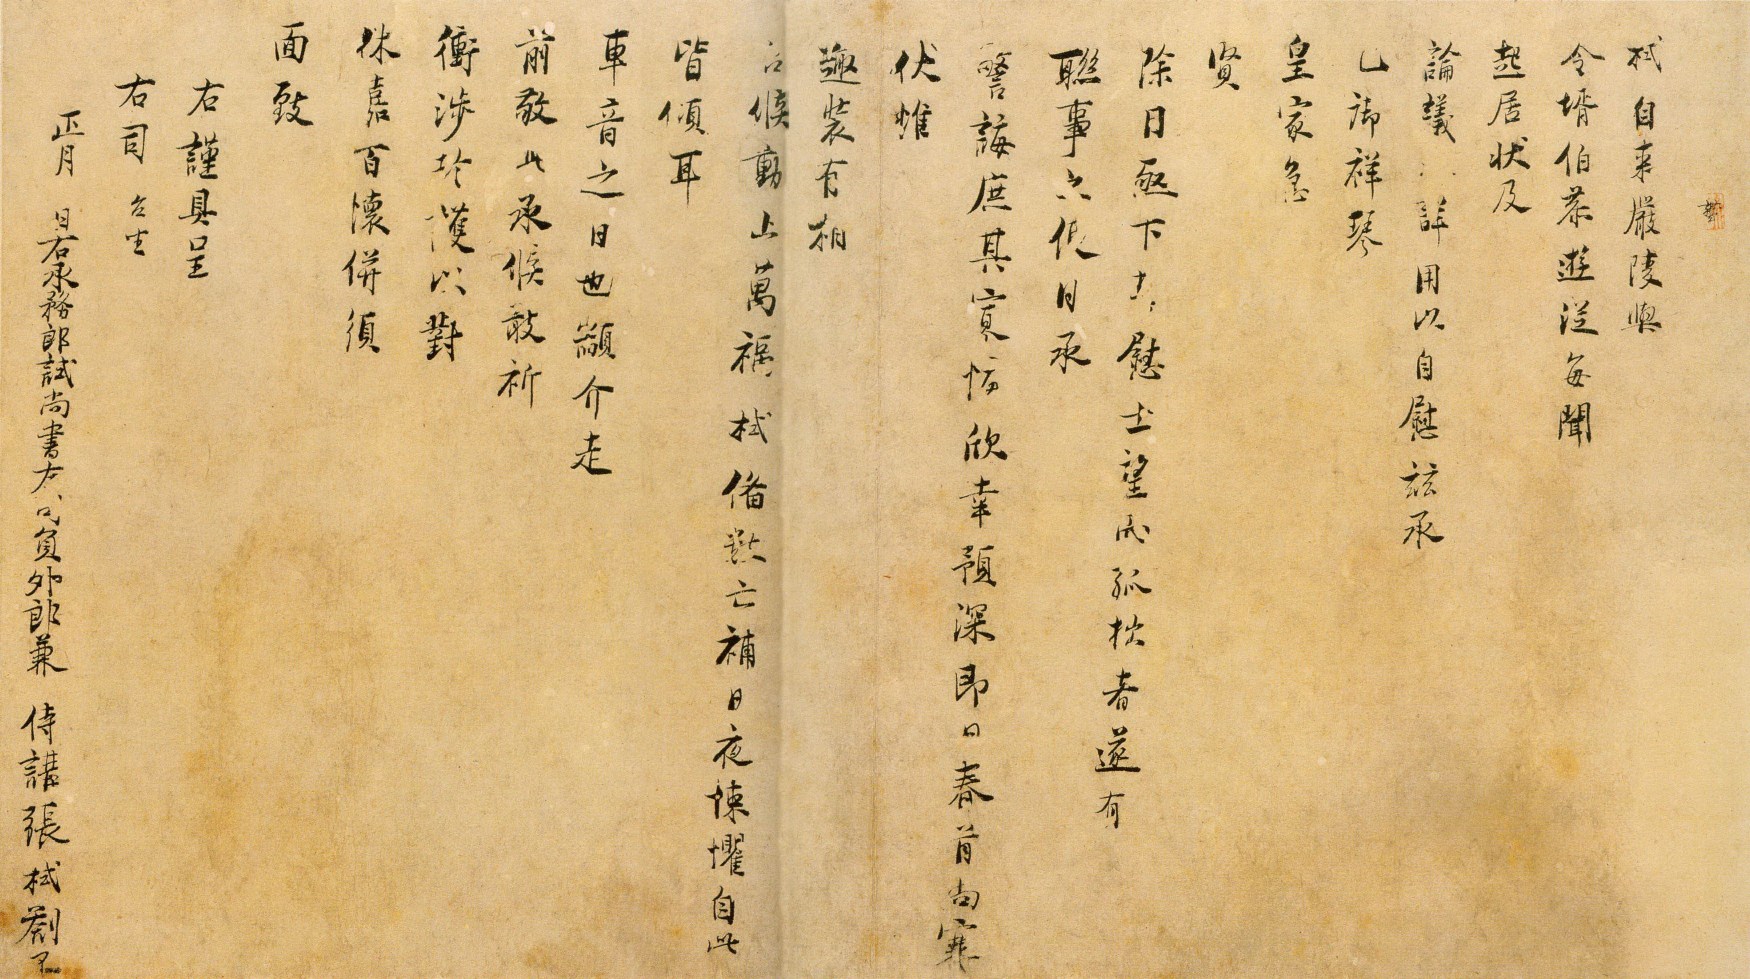 栻自來嚴陵與
令壻伯恭遊從每聞
起居狀及
論議詳用以自慰茲承
已御祥琴
皇家急
賢
除日亟下慰士望而孤拙者遂有
聯事之便日承
警誨庶其寡悔欣幸預深即日春首尚寒
伏惟
趣裝有相
台候動止萬福栻備數亡補日夜悚懼自此
皆傾耳
車音之日也顓介走
前敬此承候敢祈
衝涉珍護以對
休嘉百懷併須
面致
右謹具呈
右司
正月日右承務郎試尚書左司員外郎兼侍講張栻劄子